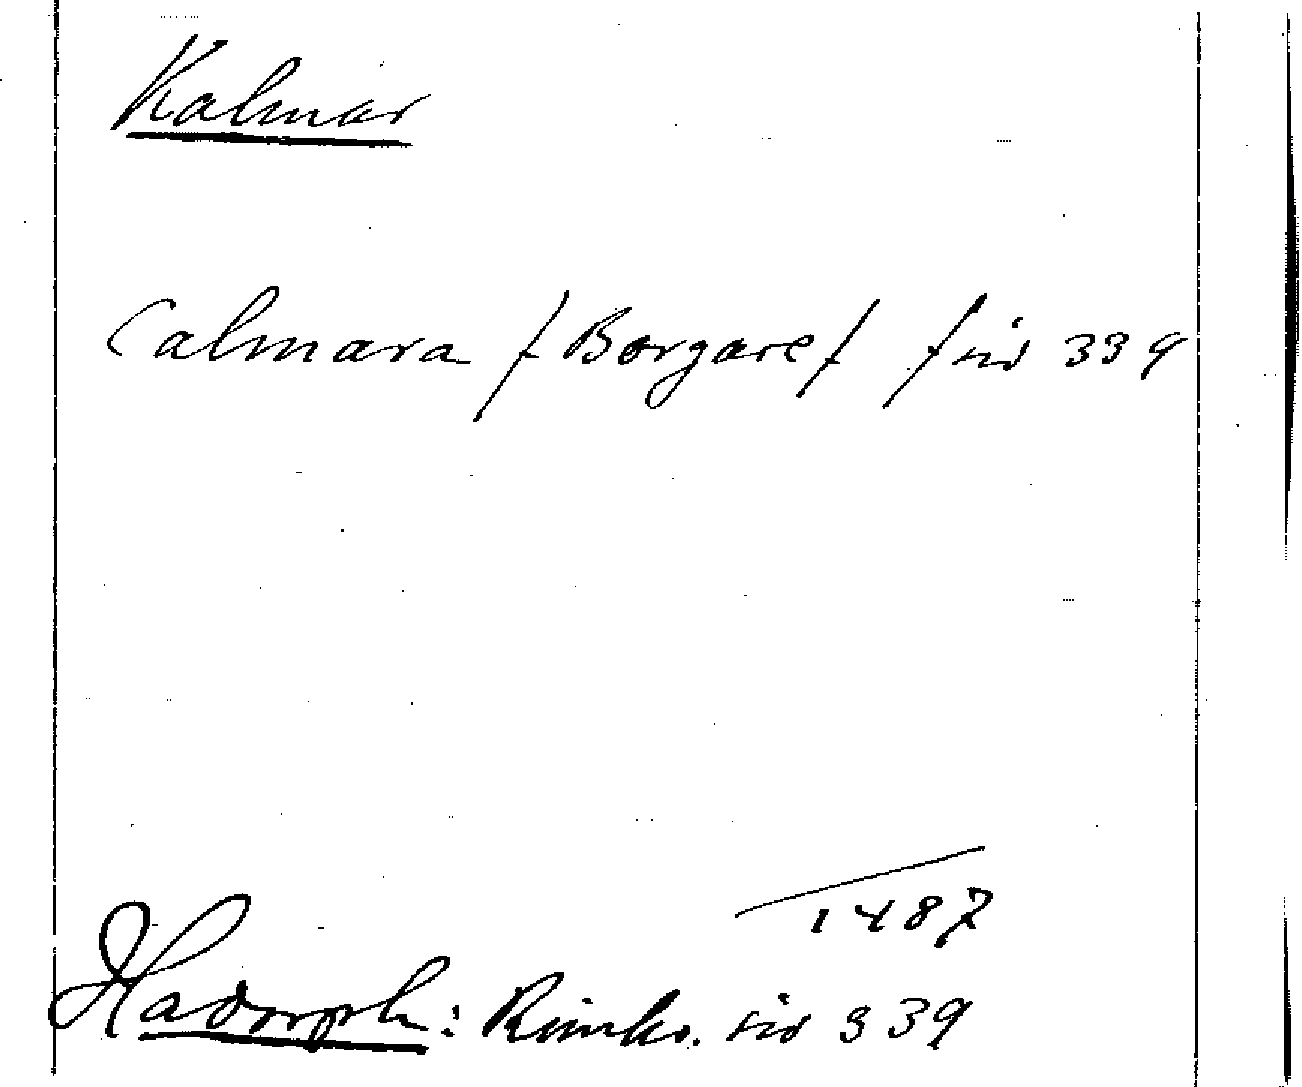 Kalmar
Calmara / Borgare / / sid 339
1487
Hadorph: Rimkr. sid 339